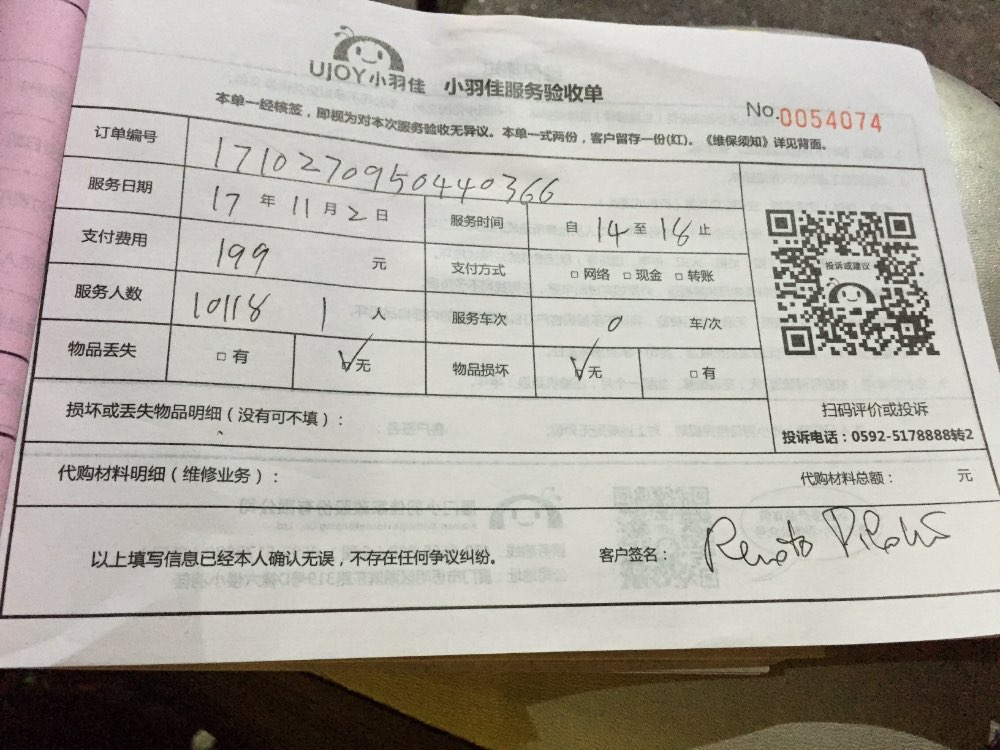 UJOY小羽佳 小羽佳服务验收单
No.0054074
本单一经核签，即视为对本次服务验收无异议。本单一式两份，客户留存一份(红)。《维保须知》详见背面。
订单编号 171027095044036​6
服务日期 17 年 11 月 2 日 服务时间 自 14 至 18 止
支付费用 199 元 支付方式 □ 网络 □ 现金 □ 转账
服务人数 10118 1 人 服务车次 0 车/次
物品丢失 □ 有 √无 物品损坏 √无 □ 有
投诉或建议
扫码评价或投诉
投诉电话：0592-5178888转2
损坏或丢失物品明细（没有可不填）：
代购材料明细（维修业务）： 代购材料总额： 元
以上填写信息已经本人确认无误，不存在任何争议纠纷。 客户签名： Renato